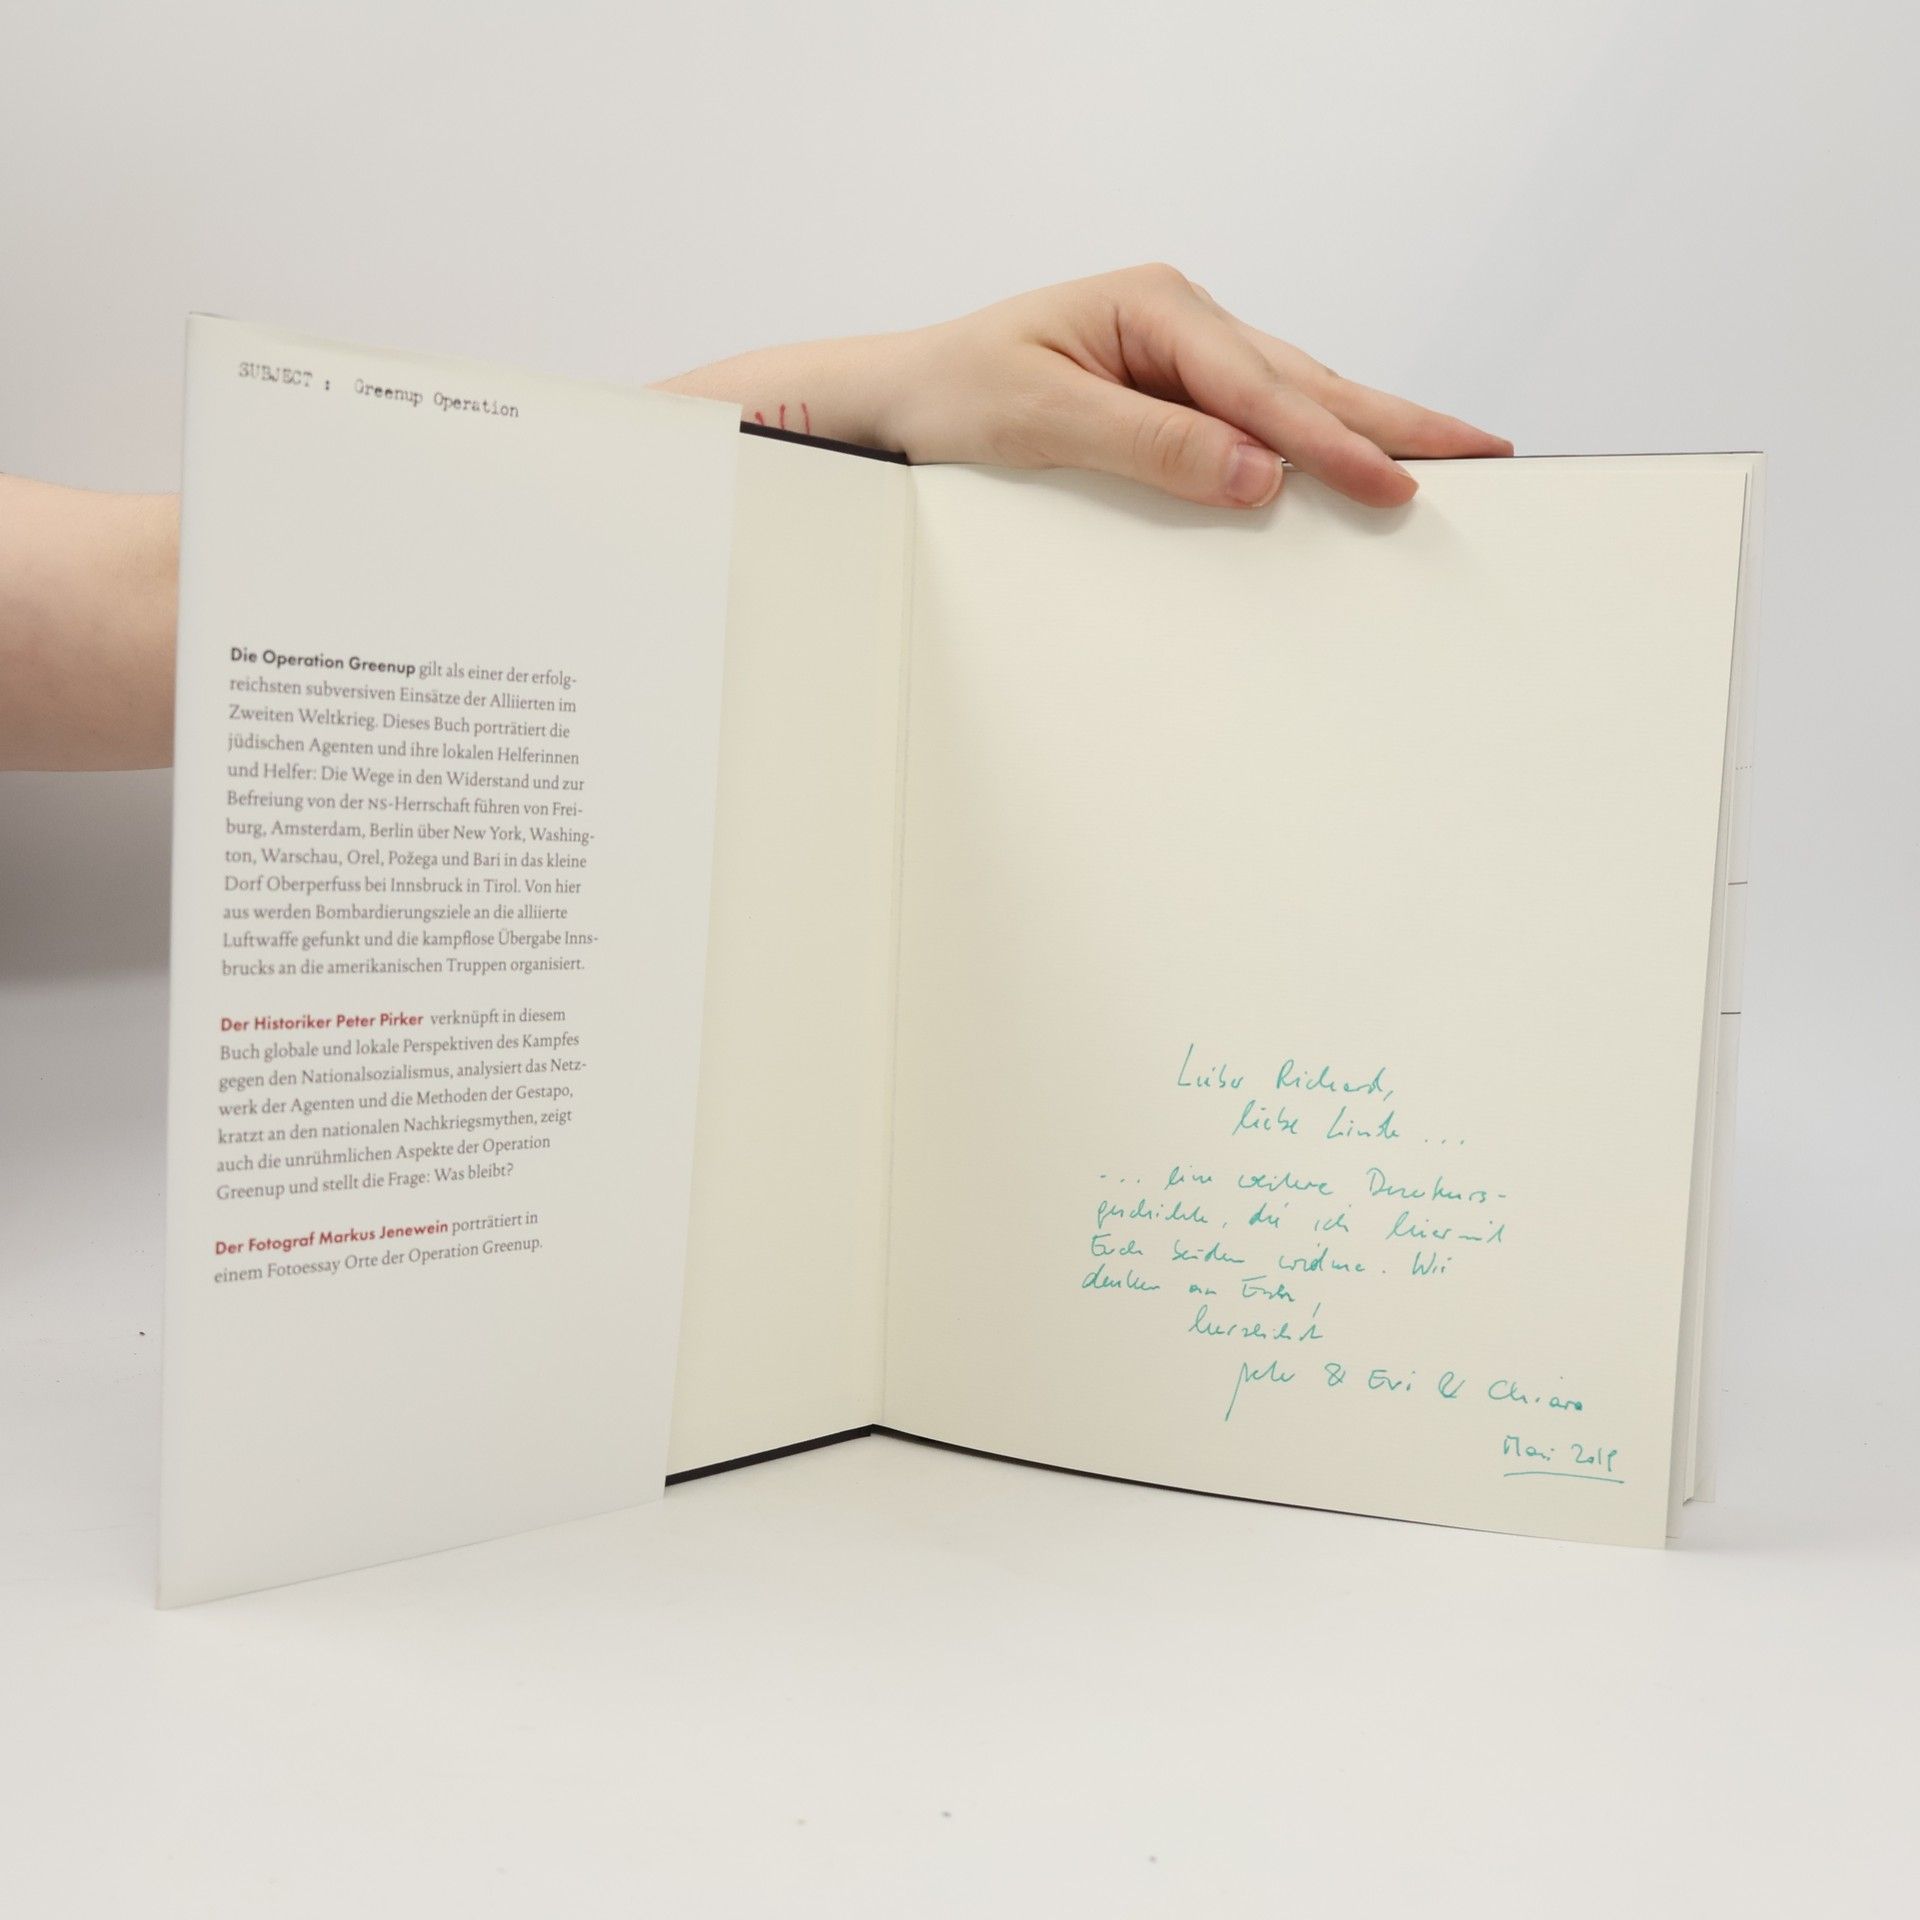 SUBJECT : Greenup Operation
Die Operation Greenup gilt als einer der erfolg-
reichsten subversiven Einsätze der Alliierten im
Zweiten Weltkrieg. Dieses Buch porträtiert die
jüdischen Agenten und ihre lokalen Helferinnen
und Helfer: Die Wege in den Widerstand und zur
Befreiung von der NS-Herrschaft führen von Frei-
burg, Amsterdam, Berlin über New York, Washing-
ton, Warschau, Orel, Požega und Bari in das kleine
Dorf Oberperfuss bei Innsbruck in Tirol. Von hier
aus werden Bombardierungsziele an die alliierte
Luftwaffe gefunkt und die kampflose Übergabe Inns-
brucks an die amerikanischen Truppen organisiert.
Der Historiker Peter Pirker verknüpft in diesem
Buch globale und lokale Perspektiven des Kampfes
gegen den Nationalsozialismus, analysiert das Netz-
werk der Agenten und die Methoden der Gestapo,
kratzt an den nationalen Nachkriegsmythen, zeigt
auch die unrühmlichen Aspekte der Operation
Greenup und stellt die Frage: Was bleibt?
Der Fotograf Markus Jenewein porträtiert in
einem Fotoessay Orte der Operation Greenup.
Lieber Richard,
liebe Linde ...
... eine weitere
geschichte, die ich hiermit
Euch beiden widme. Wir
denken an Euch,
herzlichst
Peter & Evi & Chiara
Mai 2019